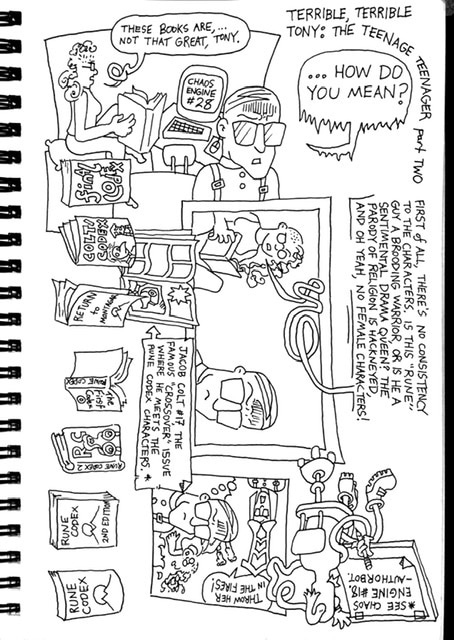 TERRIBLE, TERRIBLE
TONY: THE TEENAGE TEENAGER part TWO
THESE BOOKS ARE,...
NOT THAT GREAT, TONY.
... HOW DO
YOU MEAN?
CHAOS
ENGINE
#28
FIRST of ALL, THERE'S NO CONSISTENCY
TO THE CHARACTERS. IS THIS "RUNE"
GUY A BROODING WARRIOR, OR IS HE A
SENTIMENTAL DRAMA QUEEN? THE
PARODY OF RELIGION IS HACKNEYED,
AND OH YEAH, NO FEMALE CHARACTERS!
COLT/
CODEX
RETURN
TO
JACOB COLT #17 THE
FAMOUS "CROSSOVER" ISSUE
WHERE HE MEETS THE
RUNE CODEX CHARACTERS. *
RUNE CODEX
RUNE CODEX 2
RUNE
CODEX
2ND EDITION
RUNE
CODEX
THROW HER
IN THE FIRES!
*SEE CHAOS
ENGINE #18.
-AUTHORBOT.